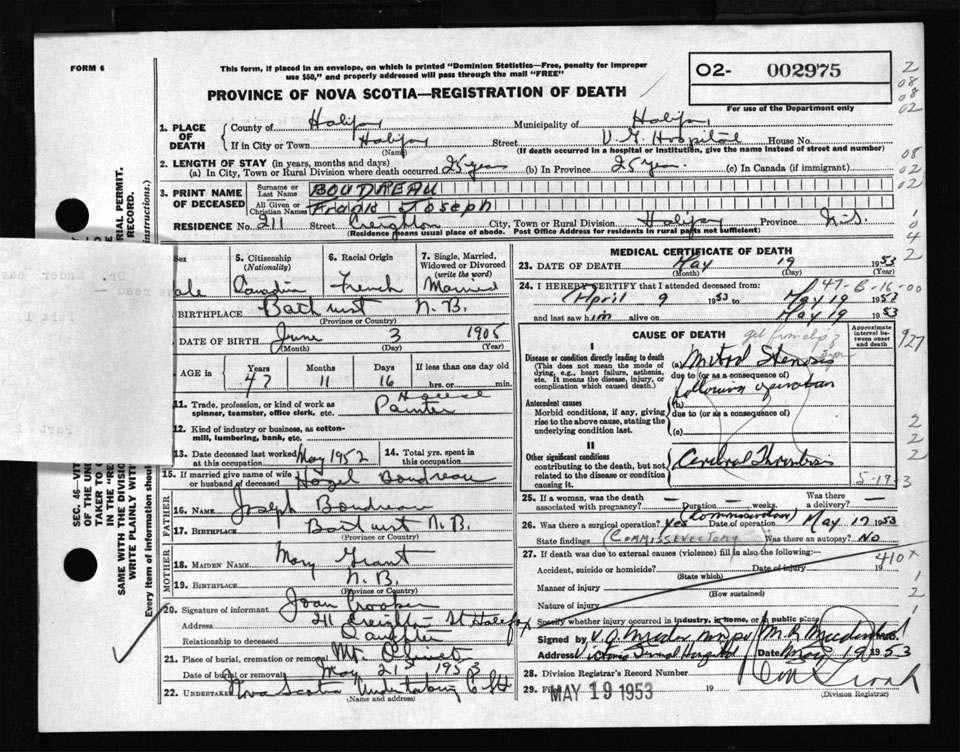 FORM 6
This form, if placed in an envelope, on which is printed "Dominion Statistics—Free, penalty for improper
use $50," and properly addressed will pass through the mail "FREE"
02- 002975
For use of the Department only
PROVINCE OF NOVA SCOTIA—REGISTRATION OF DEATH
1. PLACE OF DEATH
County of Halifax Municipality of Halifax
If in City or Town Halifax Street V.G. Hospital House No.
(Name) (If death occurred in a hospital or institution, give the name instead of street and number)
2. LENGTH OF STAY (in years, months and days)
(a) In City, Town or Rural Division where death occurred 25 years (b) In Province 25 yrs. (c) In Canada (if immigrant)
3. PRINT NAME OF DECEASED
Surname or Last Name BOUDREAU
All Given or Christian Names Frank Joseph
RESIDENCE No. 211 Street Creighton City, Town or Rural Division Halifax Province N.S.
(Residence means usual place of abode. Post Office Address for residents in rural parts not sufficient)
Sex
ale
5. Citizenship
(Nationality)
Canadian
6. Racial Origin
French
7. Single, Married,
Widowed or Divorced
(write the word)
Married
BIRTHPLACE Bathurst N.B.
(Province or Country)
DATE OF BIRTH June 3 1905
(Month) (Day) (Year)
AGE in
Years Months Days If less than one day old
47 11 16 hrs. or min.
11. Trade, profession, or kind of work as
spinner, teamster, office clerk, etc. House Painter
12. Kind of industry or business, as cotton-
mill, lumbering, bank, etc.
13. Date deceased last worked
at this occupation May 1952
14. Total yrs. spent in
this occupation
15. If married give name of wife
or husband of deceased Hazel Boudreau
FATHER
16. Name Joseph Boudreau
17. Birthplace Bathurst N.B.
(Province or Country)
MOTHER
18. MAIDEN NAME Mary Grant
19. BIRTHPLACE N.B.
(Province or Country)
20. Signature of informant Joan
Address 211 Creighton St Halifax
Relationship to deceased Daughter
21. Place of burial, cremation or removal Mt. Olivet
Date of burial or removal May 21st 1953
22. UNDERTAKER Nova Scotia Undertaking
(Name and address)
MEDICAL CERTIFICATE OF DEATH
23. DATE OF DEATH May 19 1953
(Month) (Day) (Year)
24. I HEREBY CERTIFY that I attended deceased from:
April 9 1953 to May 19 1953
and last saw him alive on May 19 1953
CAUSE OF DEATH
Approximate
interval be-
tween onset
and death
I
Disease or condition directly leading to death
(This does not mean the mode of
dying, e.g., heart failure, asthenia,
etc. It means the disease, injury, or
complication which caused death.)
(a) Mitral Stenosis
due to (or as a consequence of)
following operation
Antecedent causes
Morbid conditions, if any, giving
rise to the above cause, stating the
underlying condition last.
(b)
due to (or as a consequence of)
(c)
II
Other significant conditions
contributing to the death, but not
related to the disease or condition
causing it.
Cerebral Thrombosis
25. If a woman, was the death
associated with pregnancy? — Duration — weeks. Was there a delivery? —
26. Was there a surgical operation? Yes Date of operation May 17 1953
State findings Was there an autopsy? No
27. If death was due to external causes (violence) fill in also the following:—
Accident, suicide or homicide? Date of injury 19
(State which)
Manner of injury
(How sustained)
Nature of injury
Specify whether injury occurred in industry, in home, or in public place
Signed by
Address Victoria General Hospital Date May 19 1953
28. Division Registrar's Record Number
29. Filed MAY 19 1953 19
(Division Registrar)
410x
927
SEC. 46—
OF THE
TAKEN TO
IN THE "
SAME WITH THE
WRITE PLAINLY WITH
Every item of information should
IAL PERMIT.
RECORD.
instructions.)